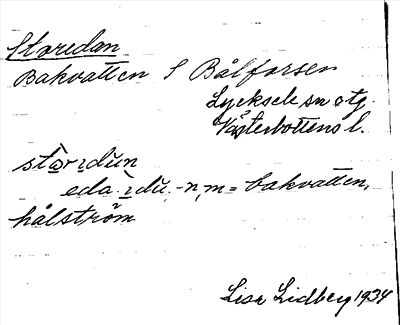 Storedan
Bakvatten S Bålforsen
Lycksele sn o tg.
Västerbottens l.
stɑ̀rɩdùn
eda ɩ̀dù, -n, m = bakvatten,
hålström
Lisa Lidberg 1934